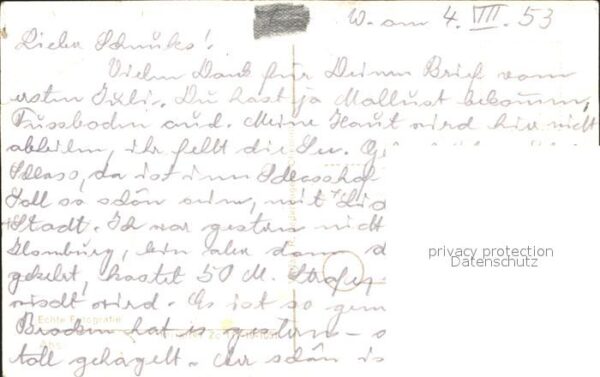 W. am 4. VII. 53
Lieber Schnuks!
Vielen Dank für Deinen Brief vom
ersten Juli. Du hast ja Mallust bekommen,
Fussboden und. Meine Haut wird hier nicht
abheilen, ihr fehlt die See.
da ist im Schlosshof
soll so schön sein, mit
Stadt. Ich war gestern nicht
Homburg, bin aber dann
gekehrt, kostet 50 M. Strafe,
wird. Es ist so
Echte Fotografie
Brocken hat es gestern –
toll gehagelt. schön is
privacy protection
Datenschutz